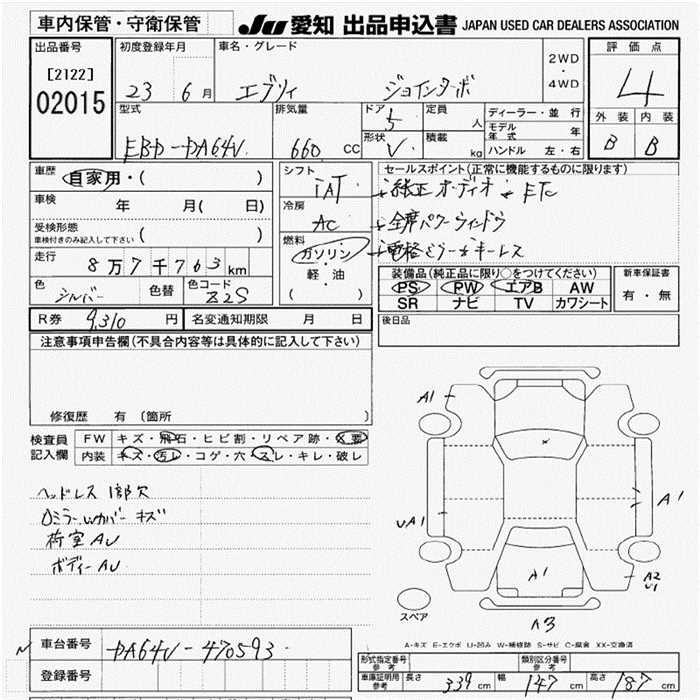 車内保管・守衛保管
JU 愛知 出品申込書 JAPAN USED CAR DEALERS ASSOCIATION
出品番号
[2122]
02015
初度登録年月
23 6月
車名・グレード
エブリイ ジョインターボ
2WD
・
4WD
評価点
4
外装 内装
B B
型式
EBD-DA64V
排気量
660 CC
ドア
5
形状
V
定員
人
積載
kg
ディーラー・並行
モデル年式 年
ハンドル 左・右
車歴
自家用・( )
車検 年 月( 日)
受検形態
車検付きのみ記入して下さい ( )
走行
8万7千763km
色
シルバー
色替
色コード
Z2S
シフト
IAT
冷房
AC
燃料
ガソリン
・
軽・油
( )
セールスポイント(正常に機能するものに限ります)
純正オーディオ ETC
全席パワーウィンドウ
電格ミラー キーレス
装備品(純正品に限り○をつけてください)
PS PW エアB AW
SR ナビ TV カワシート
新車保証書
有・無
R券 9,310 円
名変通知期限 月 日
後日品
注意事項申告欄(不具合内容等は具体的に記入して下さい)
修復歴 有(箇所 )
検査員記入欄
FW キズ・飛石・ヒビ割・リペア跡・X要
内装 キズ・汚レ・コゲ・穴・スレ・キレ・破レ
ヘッドレス 1部欠
Dミラー Wカバー キズ
荷室 AU
ボディー AU
A1
UA1
A1
A1
A2
U1
A3
スペア
A-キズ E-エクボ U-凹み W-補修跡 S-サビ C-腐食 XX-交換済
車台番号 DA64V-470593
登録番号
形式指定番号
参考
類別区分番号
参考
車庫証明用
参考
長さ 339 cm 幅 147 cm 高さ 187 cm